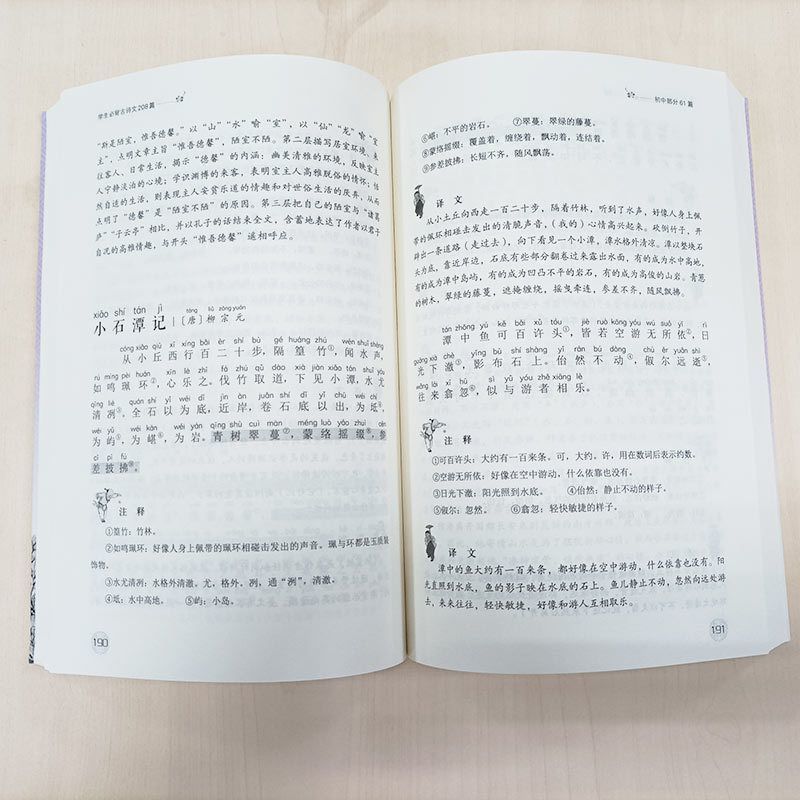 学生必背古诗文208篇
“斯是陋室，惟吾德馨。”以“山”“水”喻“室”，以“仙”“龙”喻“室
主”，点明文章主旨“惟吾德馨”，陋室不陋。第二层描写居室环境、来
往客人、日常生活，揭示“德馨”的内涵：幽美清雅的环境，反映主
人宁静淡泊的心境；学识渊博的来客，表明室主人高雅脱俗的情怀；怡
然自适的生活，则表现主人安贫乐道的情趣和对世俗生活的厌弃，从而
点明了“德馨”是“陋室不陋”的原因。第三层把自己的陋室与“诸葛
庐”“子云亭”相比，并以孔子的话结束全文，含蓄地表达了作者以君子
自况的高雅情趣，与开头“惟吾德馨”遥相呼应。
xiǎo shí tán jì
táng liǔ zōng yuán
小石潭记｜［唐］柳宗元
cóng xiǎo qiū xī xíng bǎi èr shí bù gé huáng zhú wén shuǐ shēng
从小丘西行百二十步，隔篁竹①，闻水声，
rú míng pèi huán xīn lè zhī fá zhú qǔ dào xià jiàn xiǎo tán shuǐ yóu
如鸣珮环②，心乐之。伐竹取道，下见小潭，水尤
qīng liè quán shí yǐ wéi dǐ jìn àn juǎn shí dǐ yǐ chū wéi chí
清洌③。全石以为底，近岸，卷石底以出，为坻④，
wéi yǔ wéi kān wéi yán qīng shù cuì màn méng luò yáo zhuì cēn
为屿⑤，为嵁⑥，为岩。青树翠蔓⑦，蒙络摇缀⑧，参
cī pī fú
差披拂⑨。
注 释
①篁竹：竹林。
②如鸣珮环：好像人身上佩带的珮环相碰击发出的声音。珮与环都是玉质装
饰物。
③水尤清洌：水格外清澈。尤，格外。洌，通“冽”，清澈。
④坻：水中高地。 ⑤屿：小岛。
190
初中部分61篇
⑥嵁：不平的岩石。 ⑦翠蔓：翠绿的藤蔓。
⑧蒙络摇缀：覆盖着，缠绕着，飘动着，连结着。
⑨参差披拂：长短不齐，随风飘荡。
译 文
从小土丘向西走一百二十步，隔着竹林，听到了水声，好像人身上佩
带的珮环相碰击发出的清脆声音，（我的）心情高兴起来。砍倒竹子，开
辟出一条道路（走过去），向下看见一个小潭，潭水格外清凉。潭以整块石
头为底，靠近岸边，石底有些部分翻卷过来露出水面，有的成为水中高地，
有的成为潭中岛屿，有的成为凹凸不平的岩石，有的成为高俊的山岩。青葱
的树木，翠绿的藤蔓，遮掩缠绕，摇曳牵连，参差不齐，随风飘拂。
tán zhōng yú kě bǎi xǔ tóu jiē ruò kōng yóu wú suǒ yī rì
潭中鱼可百许头①，皆若空游无所依②，日
guāng xià chè yǐng bù shí shàng yǐ rán bú dòng chù ěr yuǎn shì
光下澈③，影布石上。佁然不动④，俶尔远逝⑤，
wǎng lái xī hū sì yǔ yóu zhě xiāng lè
往来翕忽⑥，似与游者相乐。
注 释
①可百许头：大约有一百来条。可，大约。许，用在数词后表示约数。
②空游无所依：好像在空中游动，什么依靠也没有。
③日光下澈：阳光照到水底。 ④佁然：静止不动的样子。
⑤俶尔：忽然。 ⑥翕忽：轻快敏捷的样子。
译 文
潭中的鱼大约有一百来条，都好像在空中游动，什么依靠也没有。阳
光直照到水底，鱼的影子映在水底的石上。鱼儿静止不动，忽然向远处游
去，来来往往，轻快敏捷，好像和游人互相取乐。
191